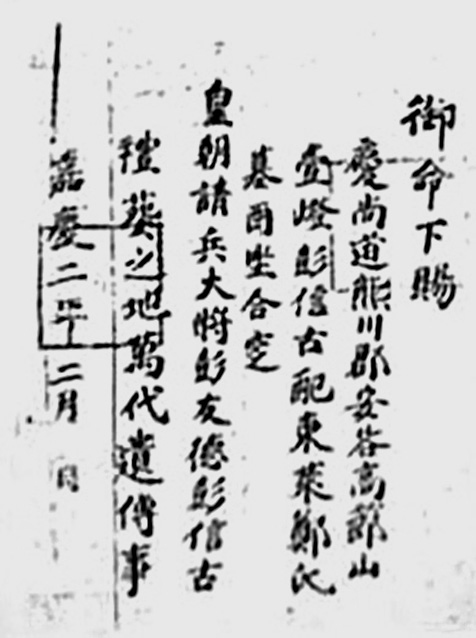 御命下賜
慶尚道熊川郡安谷高山
壹嶝彭信古配東萊鄭氏
墓酉坐合窆
皇朝請兵大將彭友德彭信古
禮葬之地萬代遺傳事
嘉慶二年二月 日